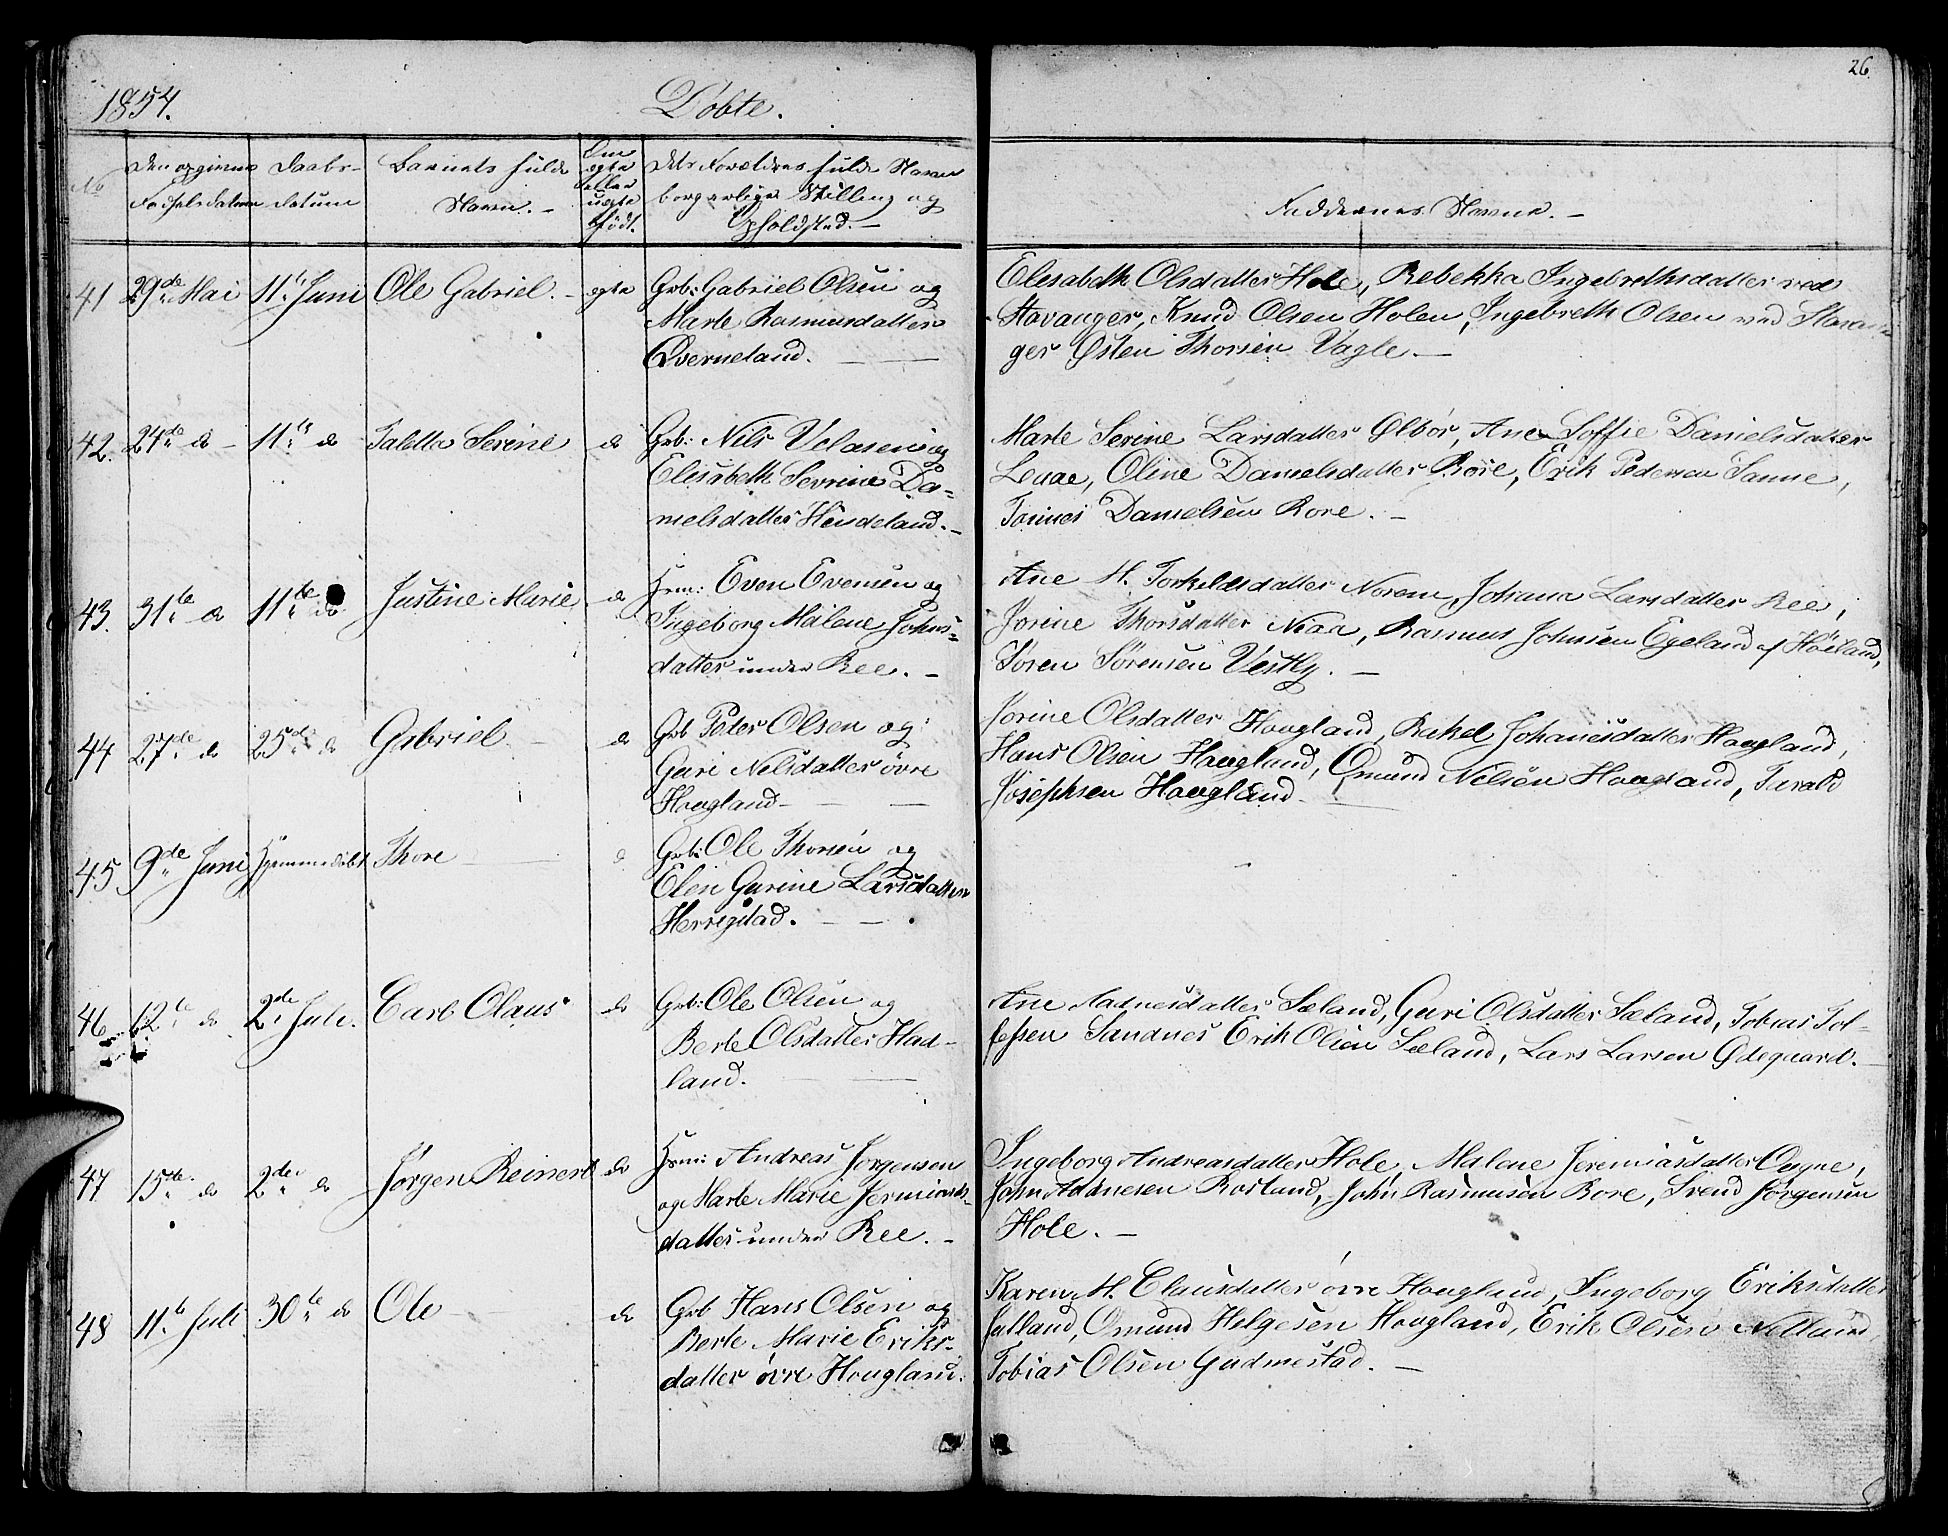 26
1854.
Døbte.
No
Den opgivne
Fødselsdatum
Daabs-
datum
Barnets fulde
Navn. -
Om
egte
eller
uegte
født.
Dets Forældres fulde Navn
borgerlige Stilling og
Opholdsted. -
Faddernes Navne. -
41 29de Mai 11te Juni Ole Gabriel. - egte
Grb: Gabriel Olsen og
Marte Rasmusdatter
Qverneland. -
Elesabeth Olsdatter Hole, Rebekka Ingebrethsdatter ved
Stavanger, Knud Olsen Holen, Ingebreth Olsen ved Stavan-
ger Østen Thorsen Vagle. -
42. 24de do - 11te do Taletta Serine do
Grb: Nils Velasen og
Elesabeth Sevrine Da-
nielsdatter Hendeland. -
Marte Serine Larsdatter Ølbør, Ane Soffie Danielsdatter
Leuae, Oline Danielsdatter Bore, Erik Pedersen Sanne,
Tønnes Danielsen Bore. -
43. 31te do 11te do Justine Marie do
Hsm: Even Evensen og
Ingeborg Malene Johns-
datter under Ree. -
Ane M. Torkildsdatter Norem, Johana Larsdatter Ree,
Jorine Thorsdatter Niaa, Rasmus Johnsen Egeland af Høiland,
Søren Sørensen Vestly. -
44 27de do 25de do Gabriel - do
Grb Peter Olsen og
Guri Nelsdatter øvre
Haugland -
Jorine Olsdatter Haugland, Rakel Johanesdatter Haugland,
Hans Olsen Haugland, Omund Nelsen Haugland, Tarald
Josephsen Haugland -
45 9de Juni Hjemmedøbt Thore - do
Grb: Ole Thorsen og
Elen Gurine Larsdatter
Herregstad. -
46 12te do 2de Juli. Carl Olaus do
Grb: Ole Olsen og
Berte Olsdatter Had-
land. -
Ane Aadnesdatter Sæland, Guri Olsdatter Sæland, Tobias Tol-
lefsen Sandnes Erik Olsen Sæland, Lars Larsen Ødegaard. -
47 15te do 2de do Jørgen Reinert do
Hsm: Andreas Jørgensen
og Marte Marie Jermiads-
datter under Ree. -
Ingeborg Andreasdatter Hole, Malene Jeremiasdatter Ongne,
John Aadnesen Rosland, John Rasmusen Bore, Svend Jørgensen
Hole. -
48 11te Juli 30te do Ole - do
Grb Hans Olsen og
Berte Marie Eriks-
datter øvre Haugland.
Karen M. Clausdatter øvre Haugland, Ingeborg Eriksdatter
Salland, Omund Helgesen Haugland, Erik Olsen Netland,
Tobias Olsen Gudmestad. -